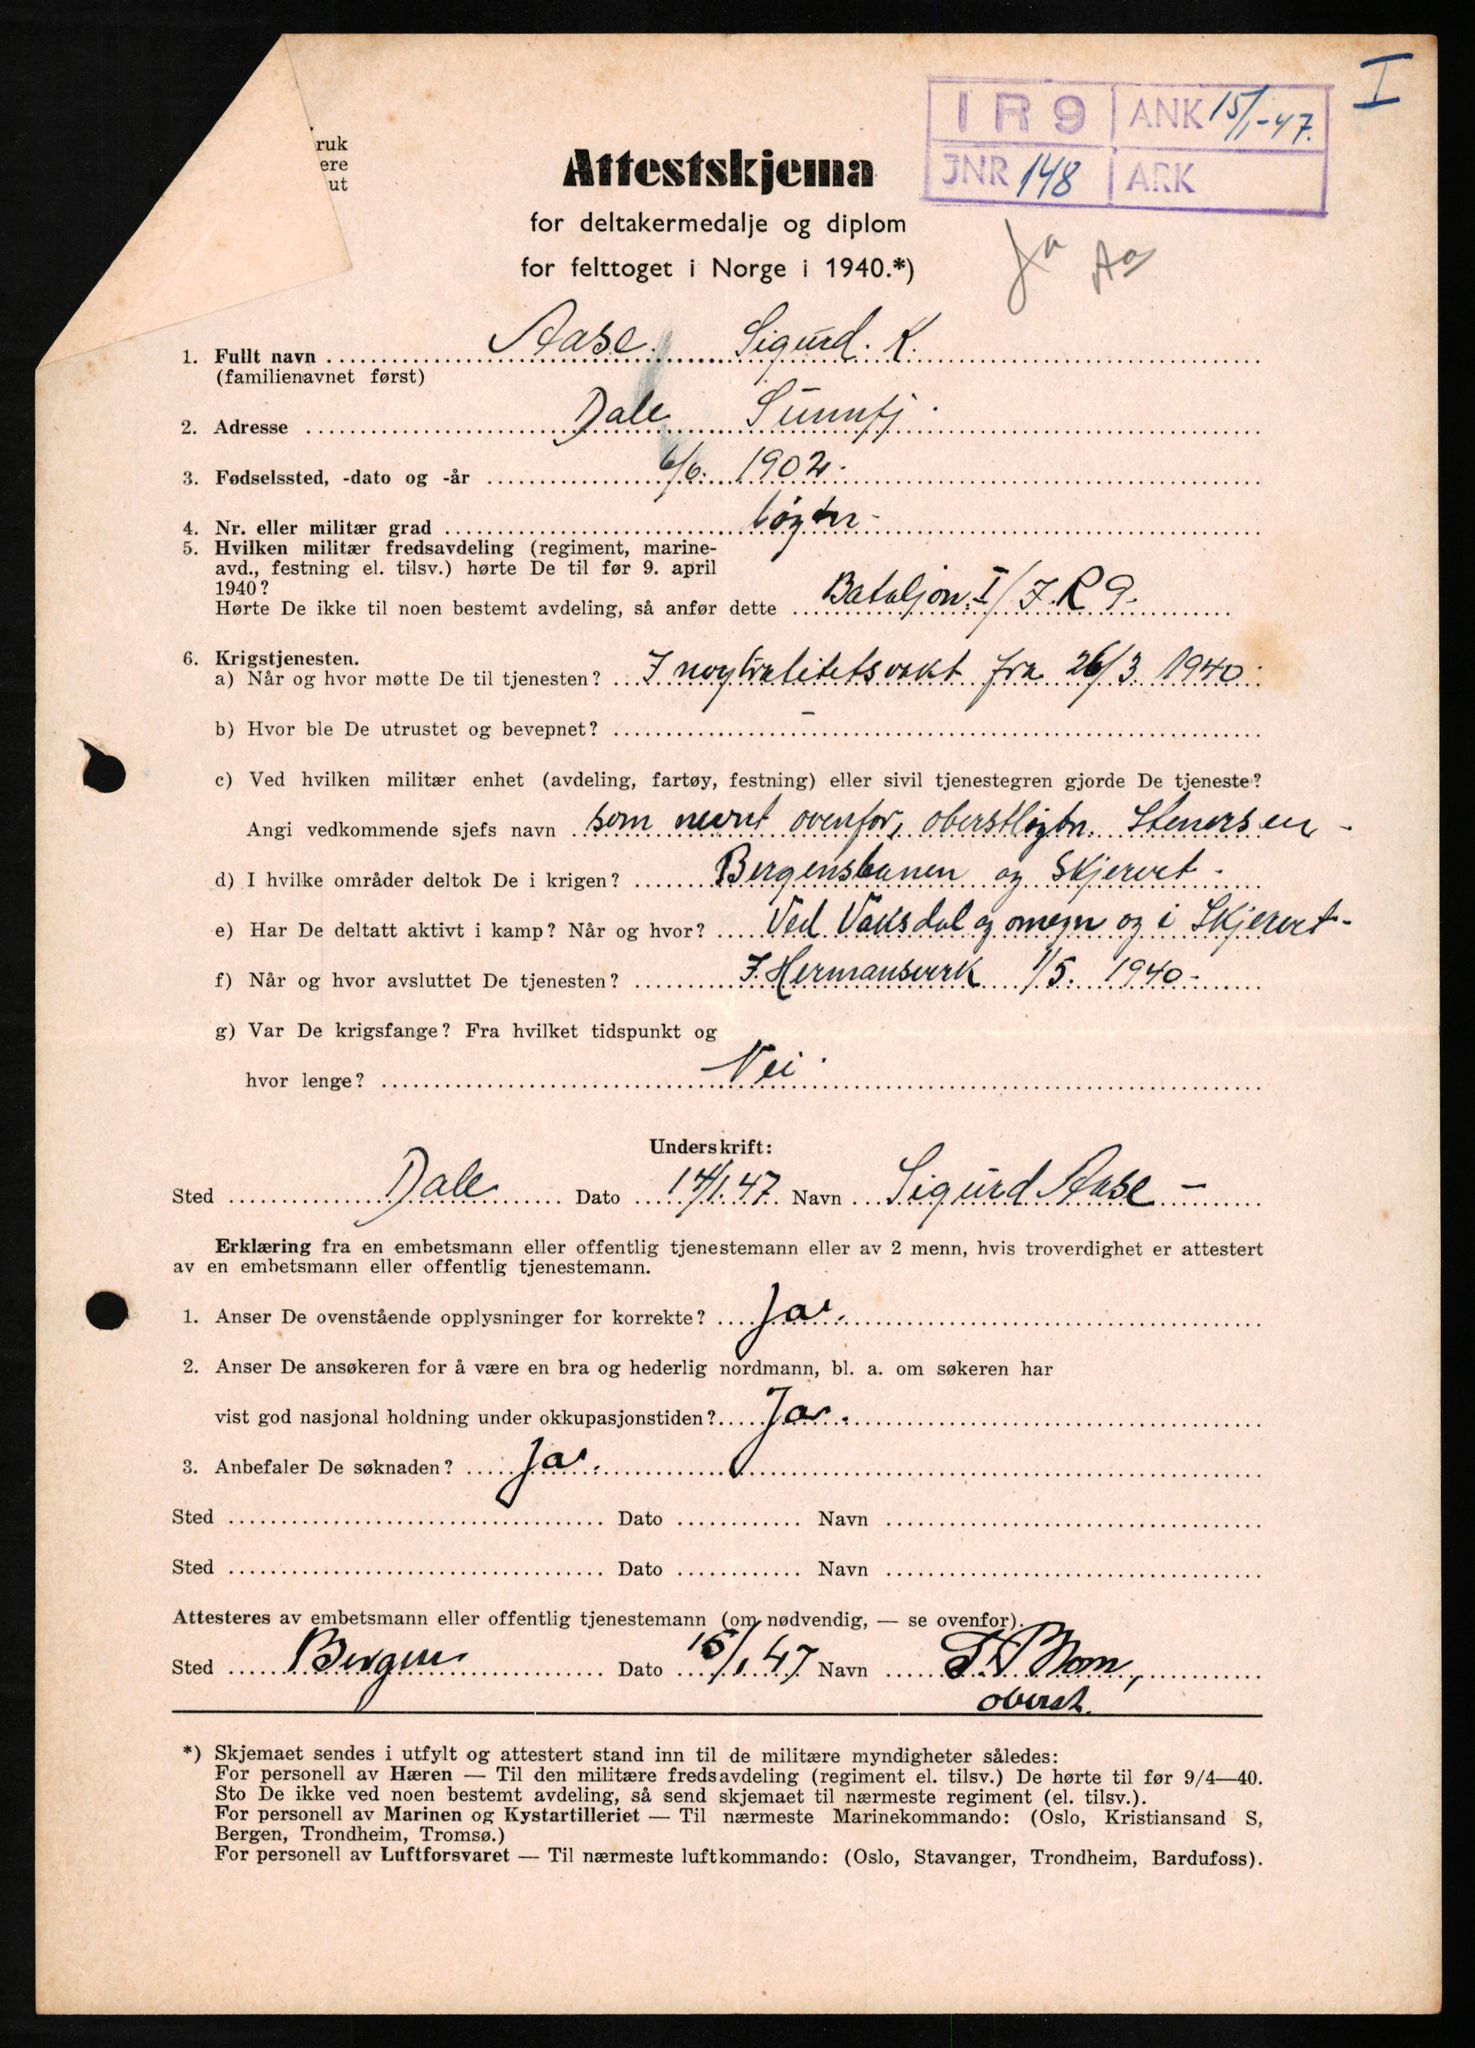 I
I R 9 ANK 15/1-47.
JNR 148 ARK
ruk
ere
ut
Attestskjema
for deltakermedalje og diplom
for felttoget i Norge i 1940.*)
Ja Aa
1. Fullt navn Aase Sigurd. K.
(familienavnet først)
2. Adresse Dale Sunnfj.
3. Fødselssted, -dato og -år 6/6. 1902.
4. Nr. eller militær grad løytn.
5. Hvilken militær fredsavdeling (regiment, marine-
avd., festning el. tilsv.) hørte De til før 9. april
1940?
Hørte De ikke til noen bestemt avdeling, så anfør dette Bataljon I/I.R 9.
6. Krigstjenesten.
a) Når og hvor møtte De til tjenesten? I nøytralitetsvakt fra 26/3 1940
b) Hvor ble De utrustet og bevepnet? –
c) Ved hvilken militær enhet (avdeling, fartøy, festning) eller sivil tjenestegren gjorde De tjeneste?
Angi vedkommende sjefs navn som nevnt ovenfor, oberstløytn. Stenersen -
d) I hvilke områder deltok De i krigen? Bergensbanen og Skjervet -
e) Har De deltatt aktivt i kamp? Når og hvor? Ved Vaksdal og omegn og i Skjervet -
f) Når og hvor avsluttet De tjenesten? I. Hermansverk 1/5. 1940 -
g) Var De krigsfange? Fra hvilket tidspunkt og
hvor lenge? Nei
Underskrift:
Sted Dale Dato 14/1.47 Navn Sigurd Aase -
Erklæring fra en embetsmann eller offentlig tjenestemann eller av 2 menn, hvis troverdighet er attestert
av en embetsmann eller offentlig tjenestemann.
1. Anser De ovenstående opplysninger for korrekte? Ja.
2. Anser De ansøkeren for å være en bra og hederlig nordmann, bl. a. om søkeren har
vist god nasjonal holdning under okkupasjonstiden? Ja.
3. Anbefaler De søknaden? Ja.
Sted Dato Navn
Sted Dato Navn
Attesteres av embetsmann eller offentlig tjenestemann (om nødvendig, — se ovenfor).
Sted Bergen Dato 15/1.47 Navn
oberst.
*) Skjemaet sendes i utfylt og attestert stand inn til de militære myndigheter således:
For personell av Hæren — Til den militære fredsavdeling (regiment el. tilsv.) De hørte til før 9/4—40.
Sto De ikke ved noen bestemt avdeling, så send skjemaet til nærmeste regiment (el. tilsv.).
For personell av Marinen og Kystartilleriet — Til nærmeste Marinekommando: (Oslo, Kristiansand S,
Bergen, Trondheim, Tromsø.)
For personell av Luftforsvaret — Til nærmeste luftkommando: (Oslo, Stavanger, Trondheim, Bardufoss).